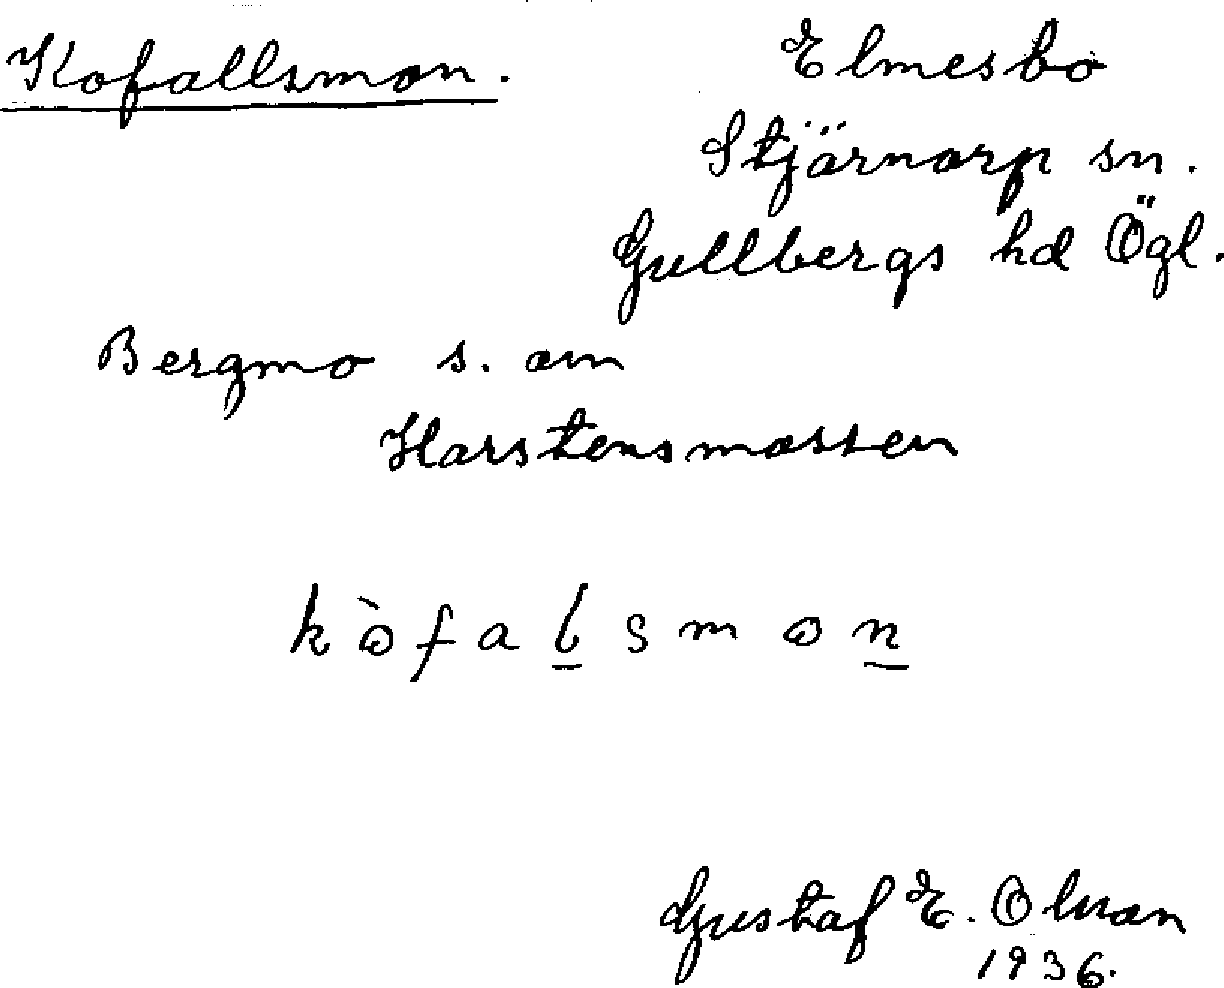 Kofallsmon. Elmesbo
Stjärnorp sn.
Gullbergs hd Ögl.
Bergmo s. om
Harstensmossen
kòfal̲smon̲
Gustaf E.
1936.